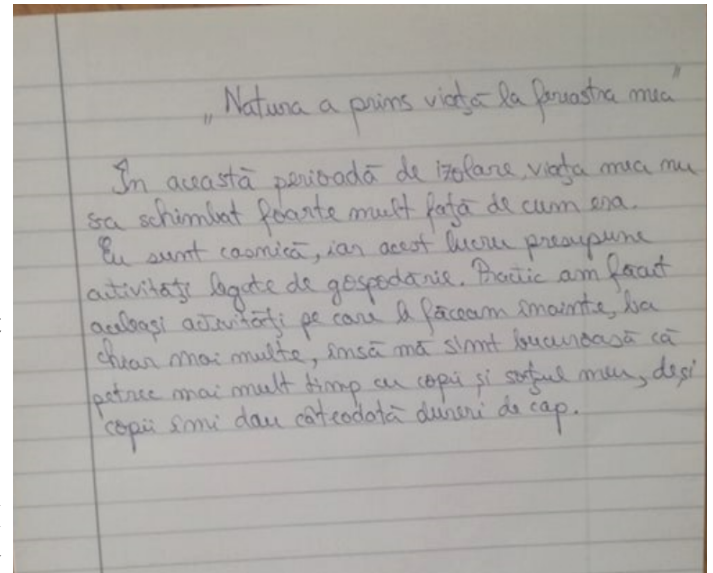 „Natura a prins viață la fereastra mea"
În această perioadă de izolare, viața mea nu
sa schimbat foarte mult față de cum era.
Eu sunt casnică, iar acest lucru presupune
activități legate de gospodărie. Practic am făcut
aceleași activități pe care le făceam înainte, ba
chear mai multe, însă mă simt bucuroasă că
petrec mai mult timp cu copii și soțul meu, deși
copii îmi dau câteodată dureri de cap.